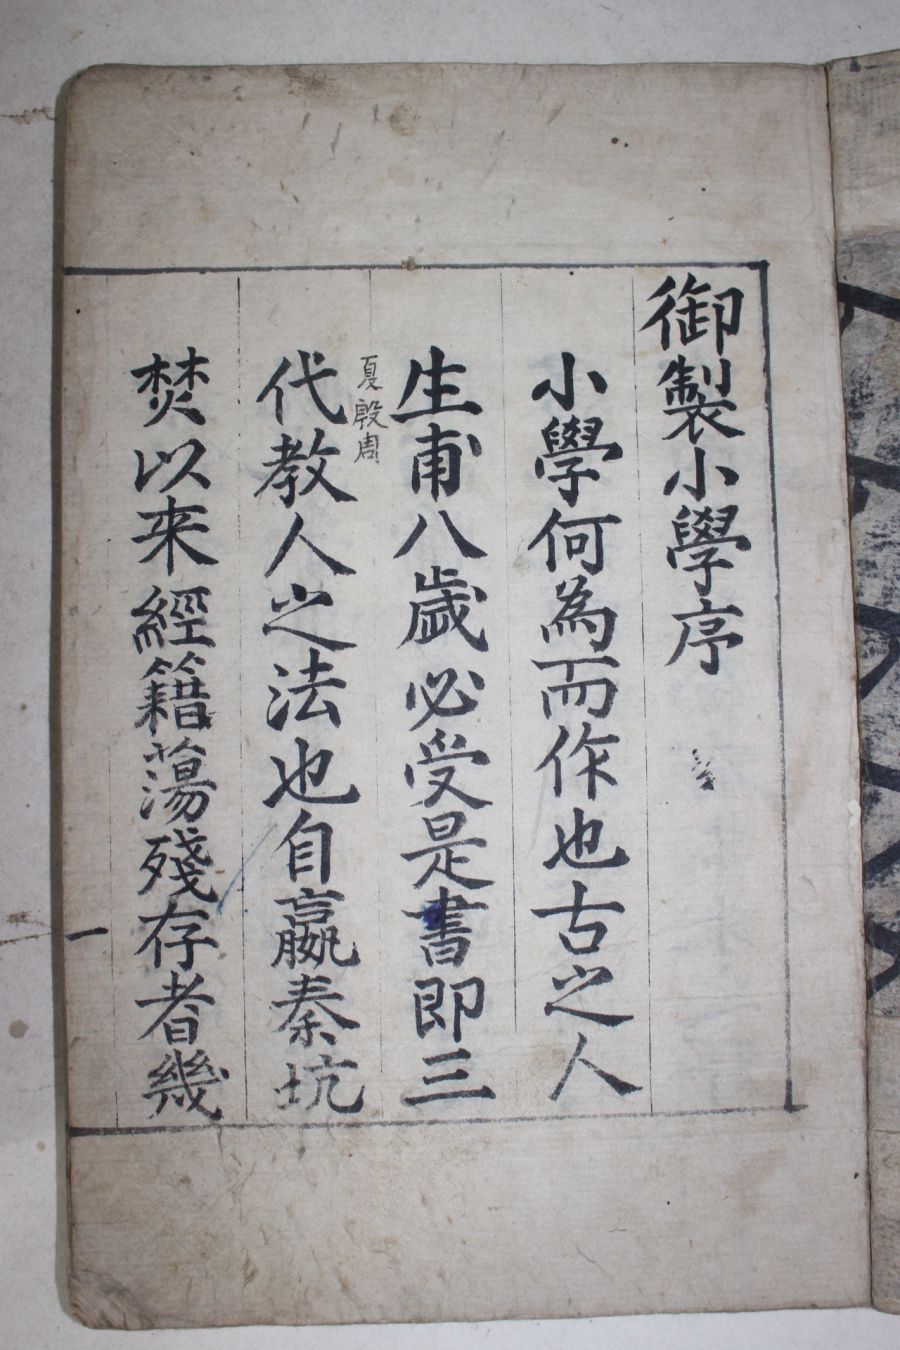 御製小學序
小學何為而作也古之人
生甫八歲必受是書即三
夏殷周
代教人之法也自嬴秦坑
焚以来經籍蕩殘存者幾
一